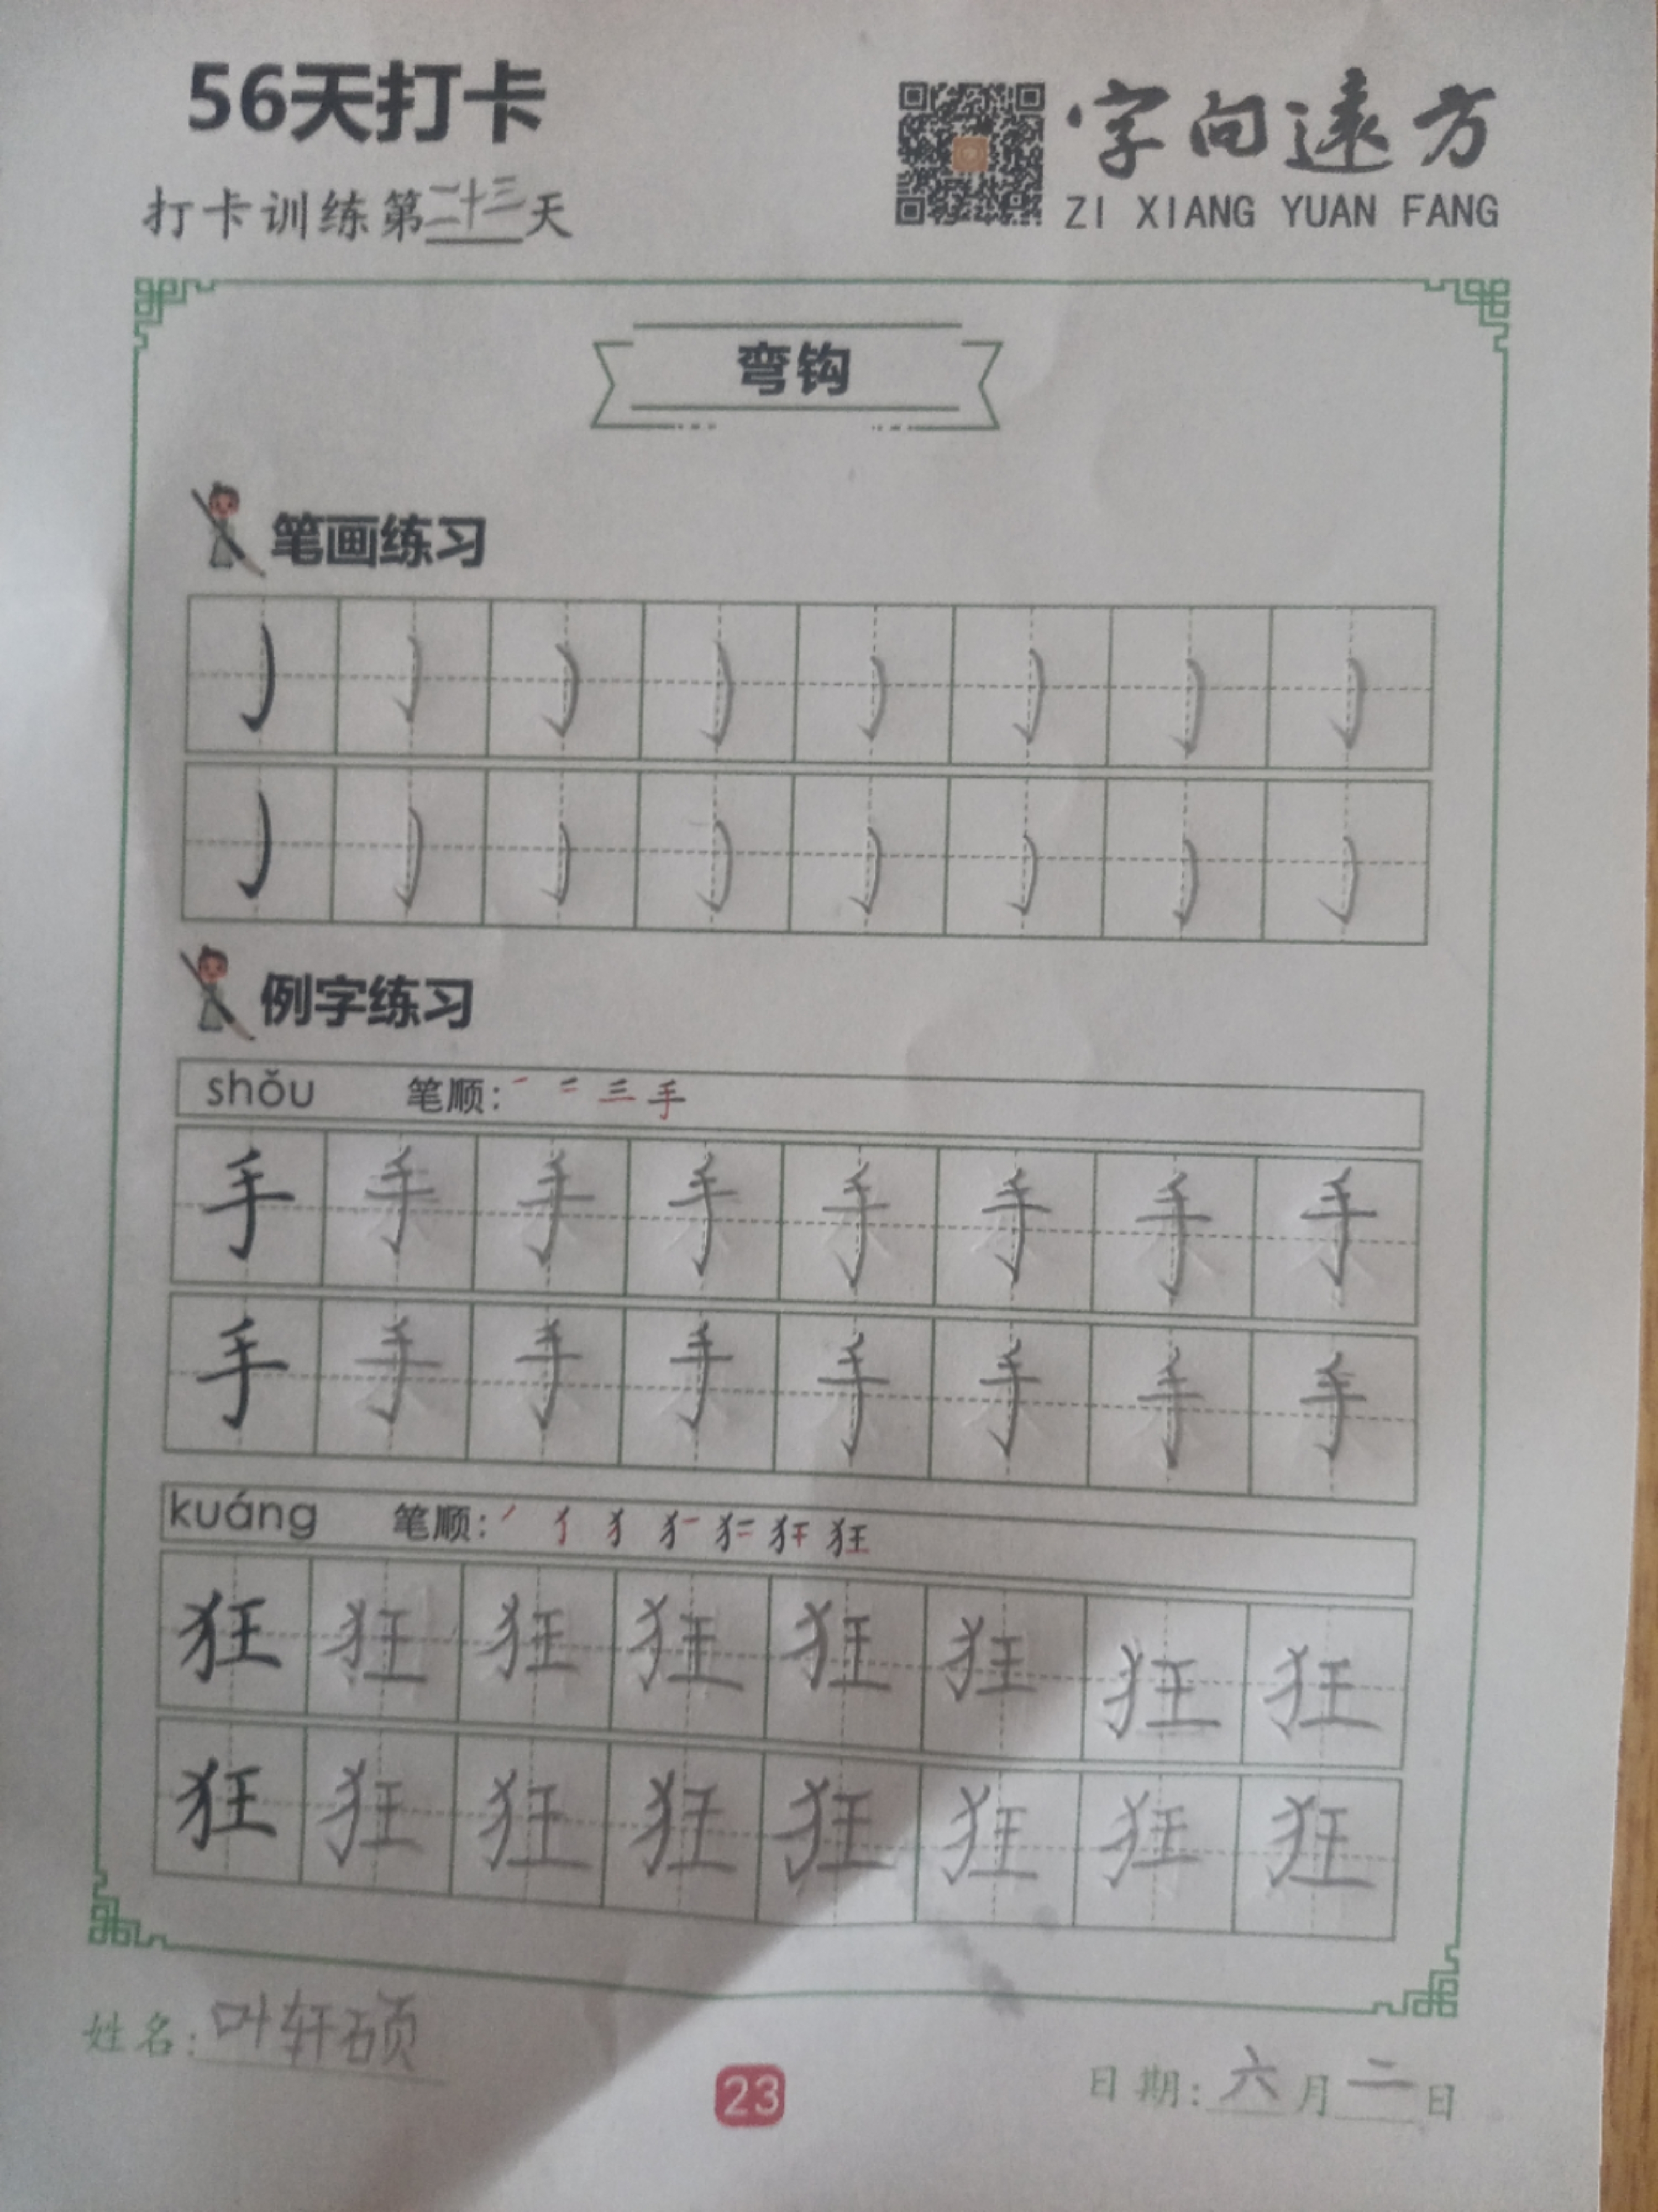 56天打卡
字向遠方
ZI XIANG YUAN FANG
打卡训练第二十三天
弯钩
笔画练习
例字练习
shǒu 笔顺: 一 二 三 手
手 手 手 手 手 手 手 手
手 手 手 手 手 手 手 手
kuáng 笔顺: 丿 犭 狂
狂 狂 狂 狂 狂 狂 狂 狂
狂 狂 狂 狂 狂 狂 狂 狂
姓名: 叶轩硕
23
日期: 六月二日